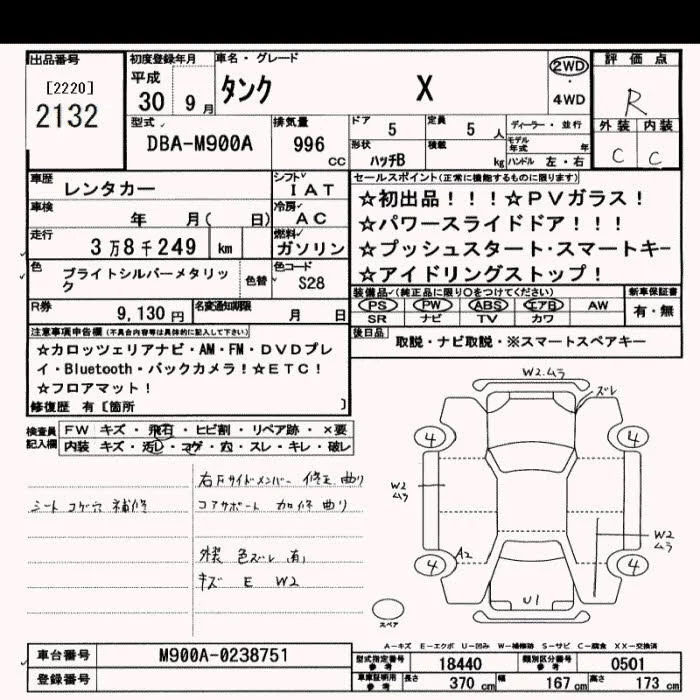 出品番号 初度登録年月 車名・グレード 評価点
[2220] 平成 タンク X 2WD ・ 4WD R
2132 30 9月
外装 内装
C C
型式 DBA-M900A 排気量 996 CC
ドア 5 定員 5 人 ディーラー・並行
形状 ハッチB 積載 kg モデル年式 年
ハンドル 左・右
車歴 レンタカー シフト IAT
車検 年 月( 日) 冷房 AC
走行 3万8千249 km 燃料 ガソリン
色 ブライトシルバーメタリック 色替 色コード S28
R券 9,130円 名変通知期限 月 日
セールスポイント(正常に機能するものに限ります)
☆初出品!!!☆PVガラス!
☆パワースライドドア!!!
☆プッシュスタート・スマートキー
☆アイドリングストップ!
装備品(純正品に限り○をつけてください) 新車保証書
PS PW ABS エアB AW 有・無
SR ナビ TV カワ
後日品 取説・ナビ取説・※スマートスペアキー
注意事項申告欄(不具合内容等は具体的に記入して下さい)
☆カロッツェリアナビ・AM・FM・DVDプレ
イ・Bluetooth・バックカメラ!☆ETC!
☆フロアマット!
修復歴 有〔箇所 〕
検査員記入欄
FW キズ・飛石・ヒビ割・リペア跡・×要
内装 キズ・汚レ・コゲ・穴・スレ・キレ・破レ
シート コゲ穴 補修
右Fサイドメンバー 修正 曲り
コアサポート 加修 曲り
外装 色ズレ 有
キズ E W2
W2.ムラ
ズレ
4 4
W2
ムラ
W2
ムラ
A2
4 4
U1
スペア
A-キズ E-エクボ U-凹み W-補修跡 S-サビ C-腐食 XX-交換済
車台番号 M900A-0238751
登録番号
型式指定番号 参考 18440 類別区分番号 参考 0501
車庫証明用 参考 長さ 370cm 幅 167cm 高さ 173cm